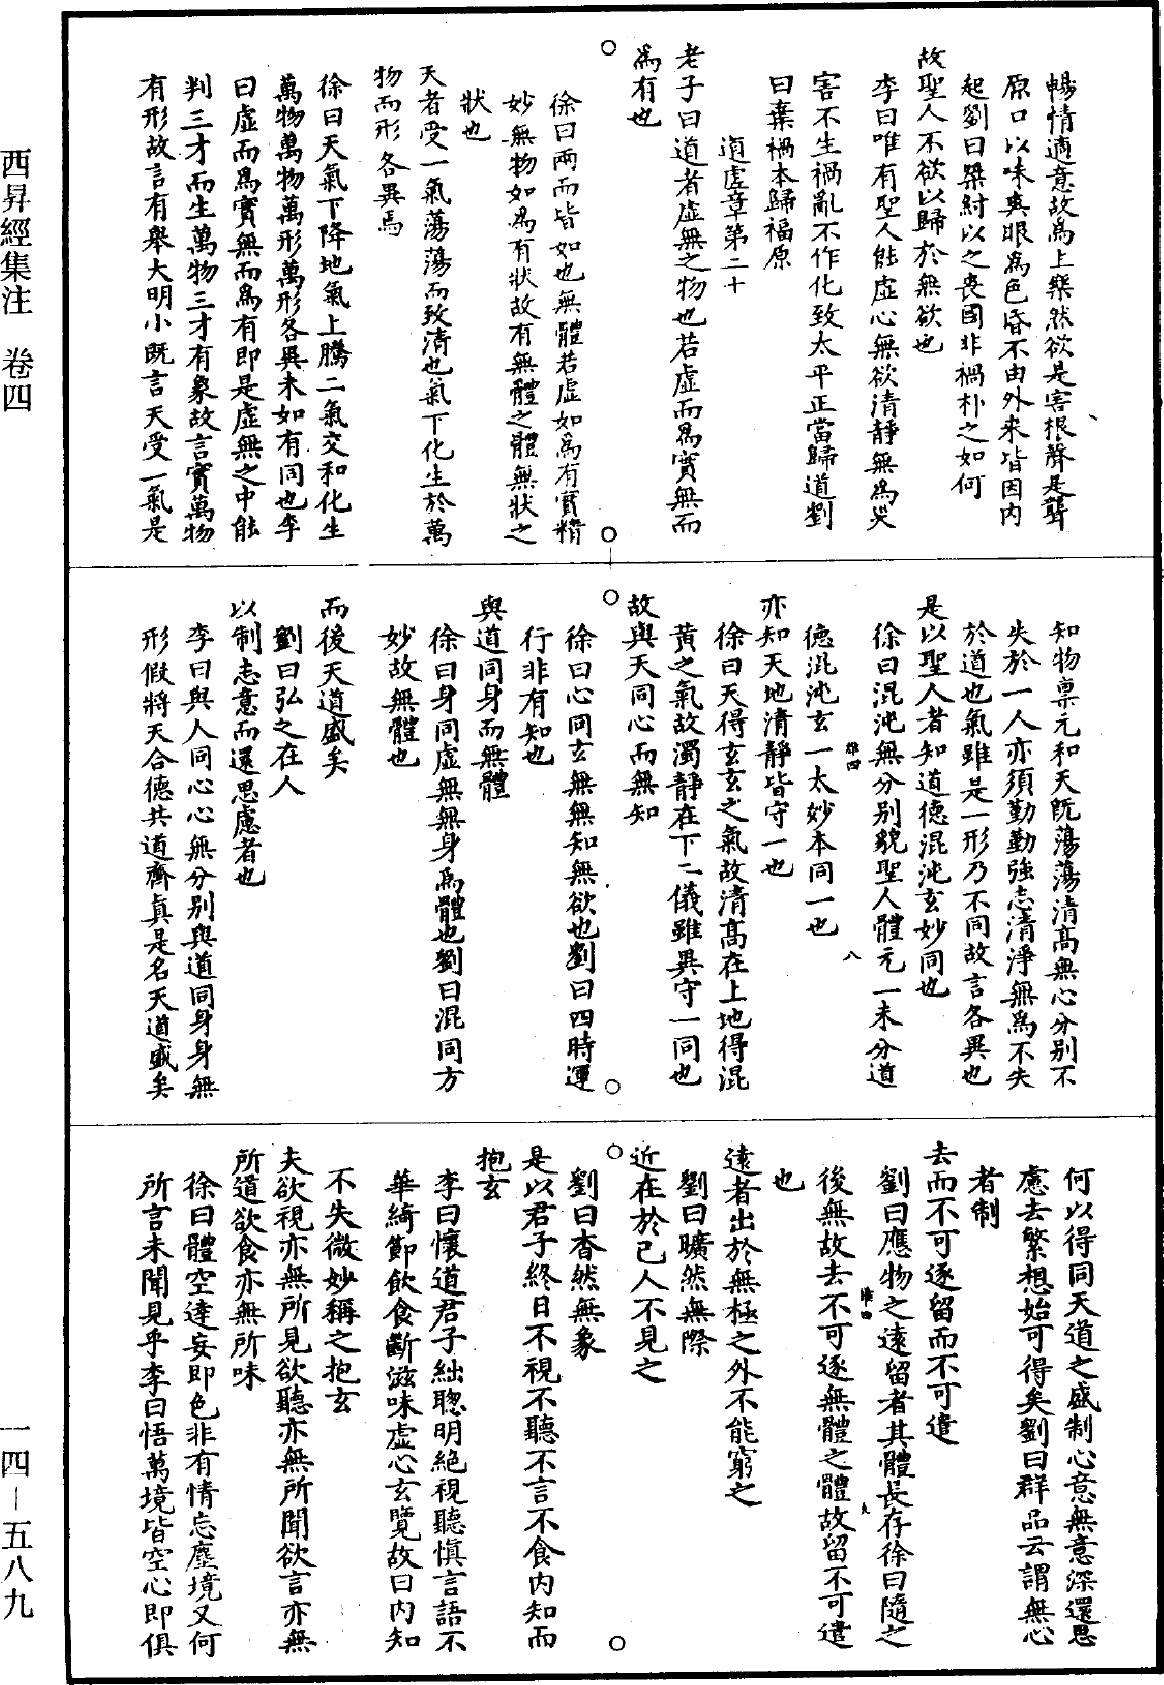 西昇經集注　卷四
一四—五八九
暢情適意故爲上樂然欲是害根聲是聾
原口以味爽眼爲色昏不由外来皆因内
起劉曰桀紂以之喪國非禍朴之如何
故聖人不欲以歸於無欲也
李曰唯有聖人能虛心無欲清靜無爲災
害不生禍亂不作化致太平正當歸道劉
曰棄禍本歸福原
道虛章第二十
老子曰道者虛無之物也若虛而爲實無而
爲有也
徐曰兩而皆如也無體若虛如爲有實精
妙無物如爲有状故有無體之體無状之
状也
天者受一氣蕩蕩而致清也氣下化生於萬
物而形各異焉
徐曰天氣下降地氣上騰二氣交和化生
萬物萬物萬形萬形各異未如有同也李
曰虛而爲實無而爲有即是虛無之中能
判三才而生萬物三才有象故言實萬物
有形故言有舉大明小既言天受一氣是
知物禀元和天既蕩蕩清高無心分別不
失於一人亦須勤勤強志清淨無爲不失
於道也氣雖是一形乃不同故言各異也
是以聖人者知道德混沌玄妙同也
徐曰混沌無分別貌聖人體元一未分道
八
德混沌玄一太妙本同一也
亦知天地清靜皆守一也
徐曰天得玄玄之氣故清高在上地得混
黄之氣故濁靜在下二儀雖異守一同也
故與天同心而無知
徐曰心同玄無無知無欲也劉曰四時運
行非有知也
與道同身而無體
徐曰身同虛無無身爲體也劉曰混同方
妙故無體也
而後天道盛矣
劉曰弘之在人
以制志意而還思慮者也
李曰與人同心心無分別與道同身身無
形假將天合德共道齊真是名天道盛矣
何以得同天道之盛制心意無意深還思
慮去繁想始可得矣劉曰群品云謂無心
者制
去而不可逐留而不可遣
劉曰應物之遠留者其體長存徐曰隨之
後無故去不可逐無體之體故留不可遣
也
遠者出於無極之外不能窮之
劉曰曠然無際
近在於己人不見之
劉曰杳然無象
是以君子終日不視不聽不言不食内知而
抱玄
李曰懷道君子絀聰明絶視聽慎言語不
華綺節飲食斷滋味虛心玄覽故曰内知
不失微妙稱之抱玄
夫欲視亦無所見欲聽亦無所聞欲言亦無
所道欲食亦無所味
徐曰體空達妄即色非有情忘塵境又何
所言未聞見乎李曰悟萬境皆空心即俱